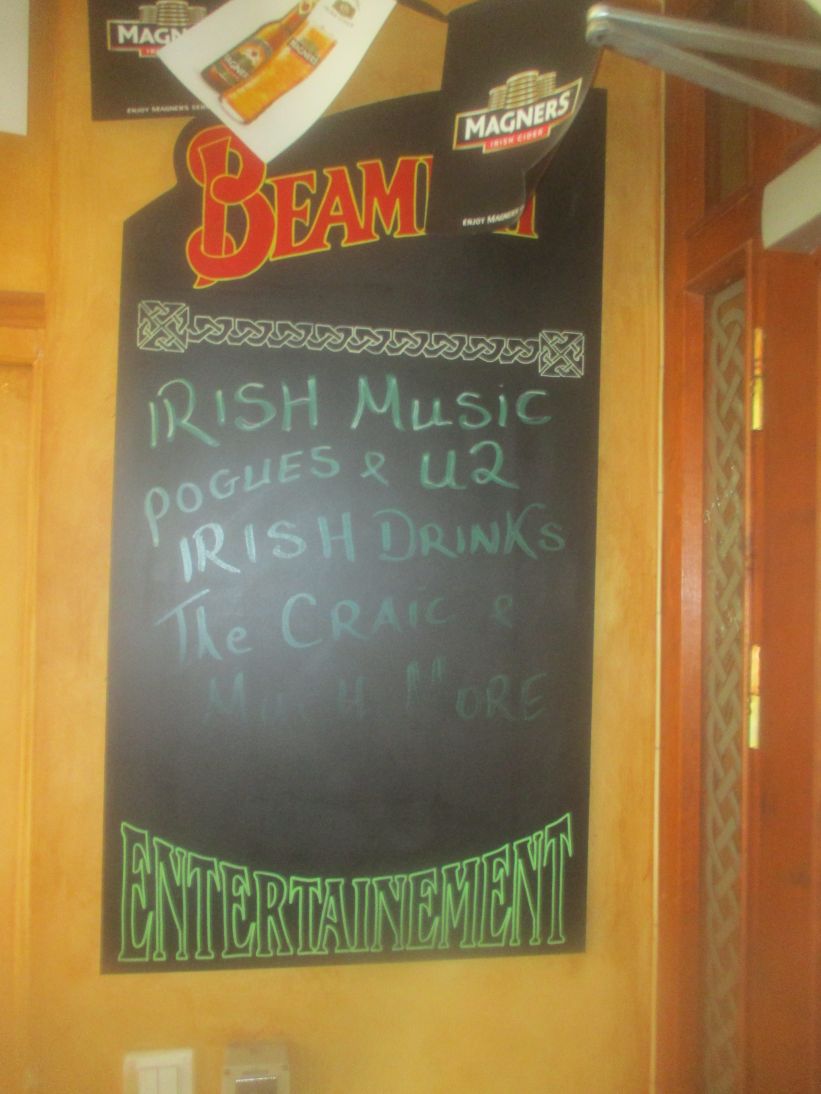 MAGN
ENJOY MAGNERS
MAGNERS
MAGNERS
MAGNERS
IRISH CIDER
ENJOY MAGNERS
BEAM
IRISH MUSIC
POGUES & U2
IRISH DRINKS
The CRAIC &
MUCH MORE
ENTERTAINEMENT